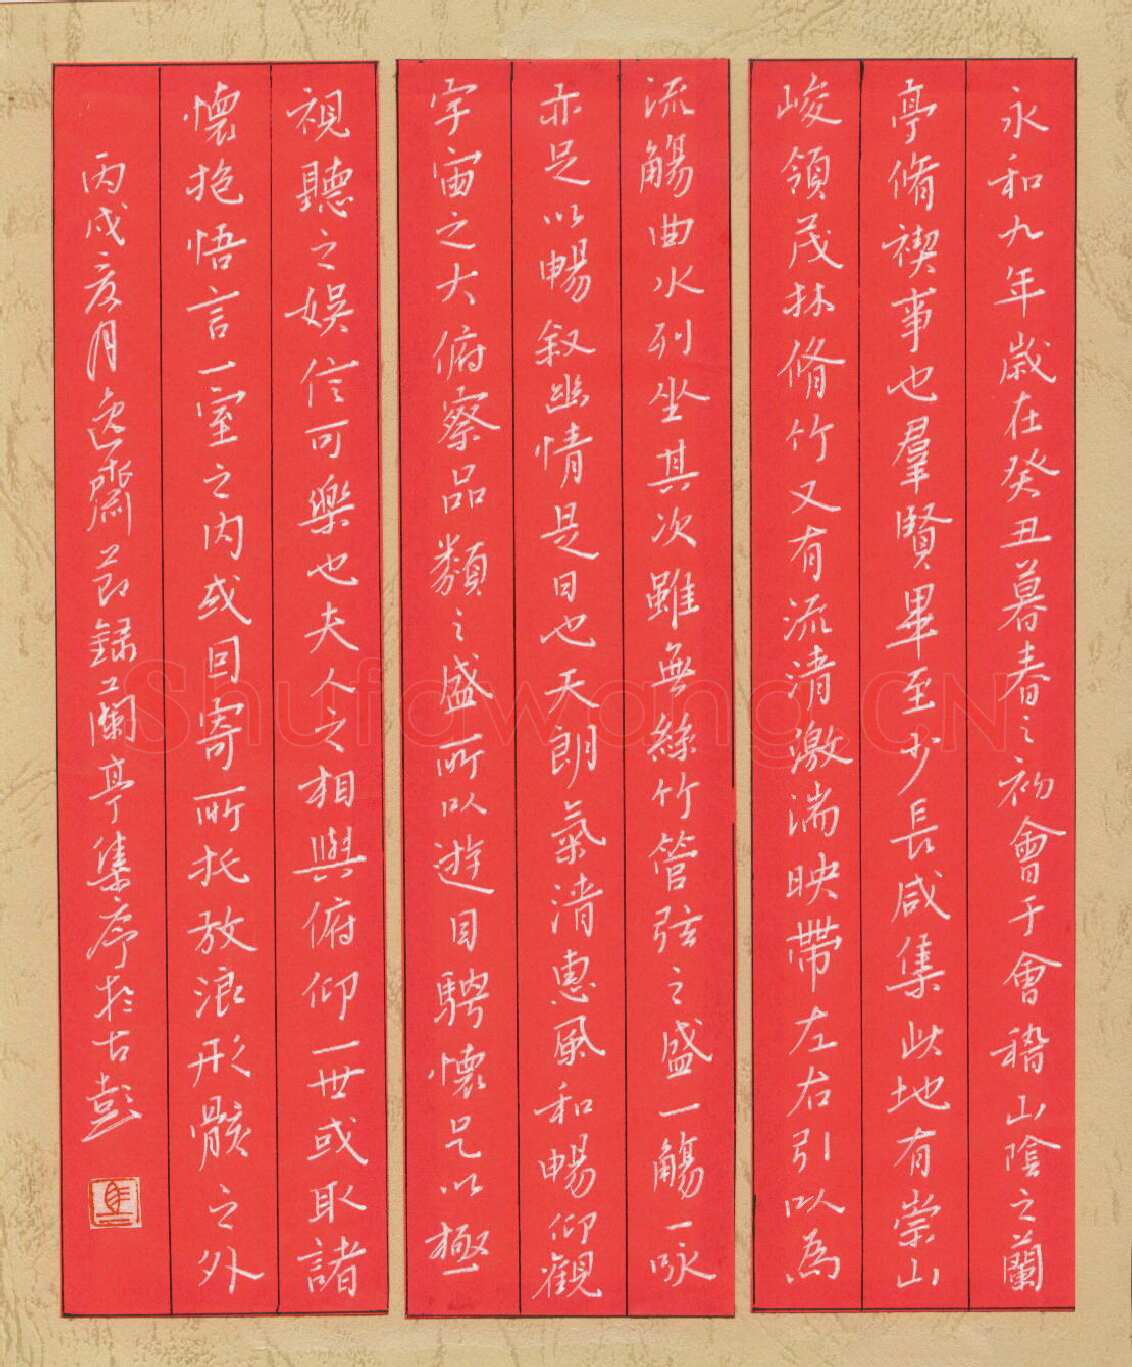 永和九年歲在癸丑暮春之初會于會稽山陰之蘭
亭脩禊事也羣賢畢至少長咸集此地有崇山
峻領茂林脩竹又有流清激湍映帶左右引以為
流觴曲水列坐其次雖無絲竹管弦之盛一觴一咏
亦足以暢叙幽情是日也天朗氣清惠風和暢仰觀
宇宙之大俯察品類之盛所以遊目騁懷足以極
視聽之娛信可樂也夫人之相與俯仰一世或取諸
懷抱悟言一室之内或回寄所托放浪形骸之外
丙戌夏月逸齋節録蘭亭集序於古彭
Shufawang.CN